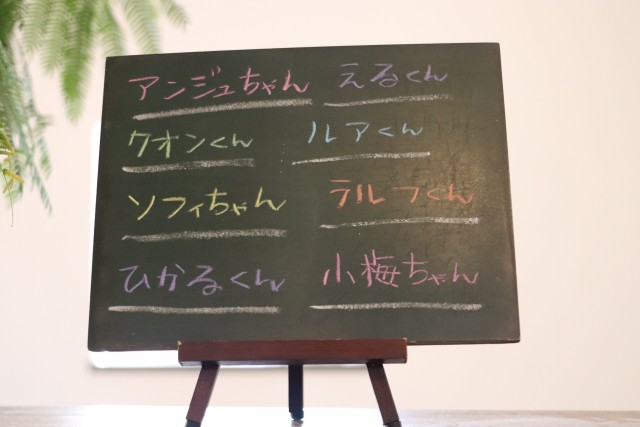 アンジュちゃん えるくん
クオンくん ルアくん
ソフィちゃん ラルフくん
ひかるくん 小梅ちゃん